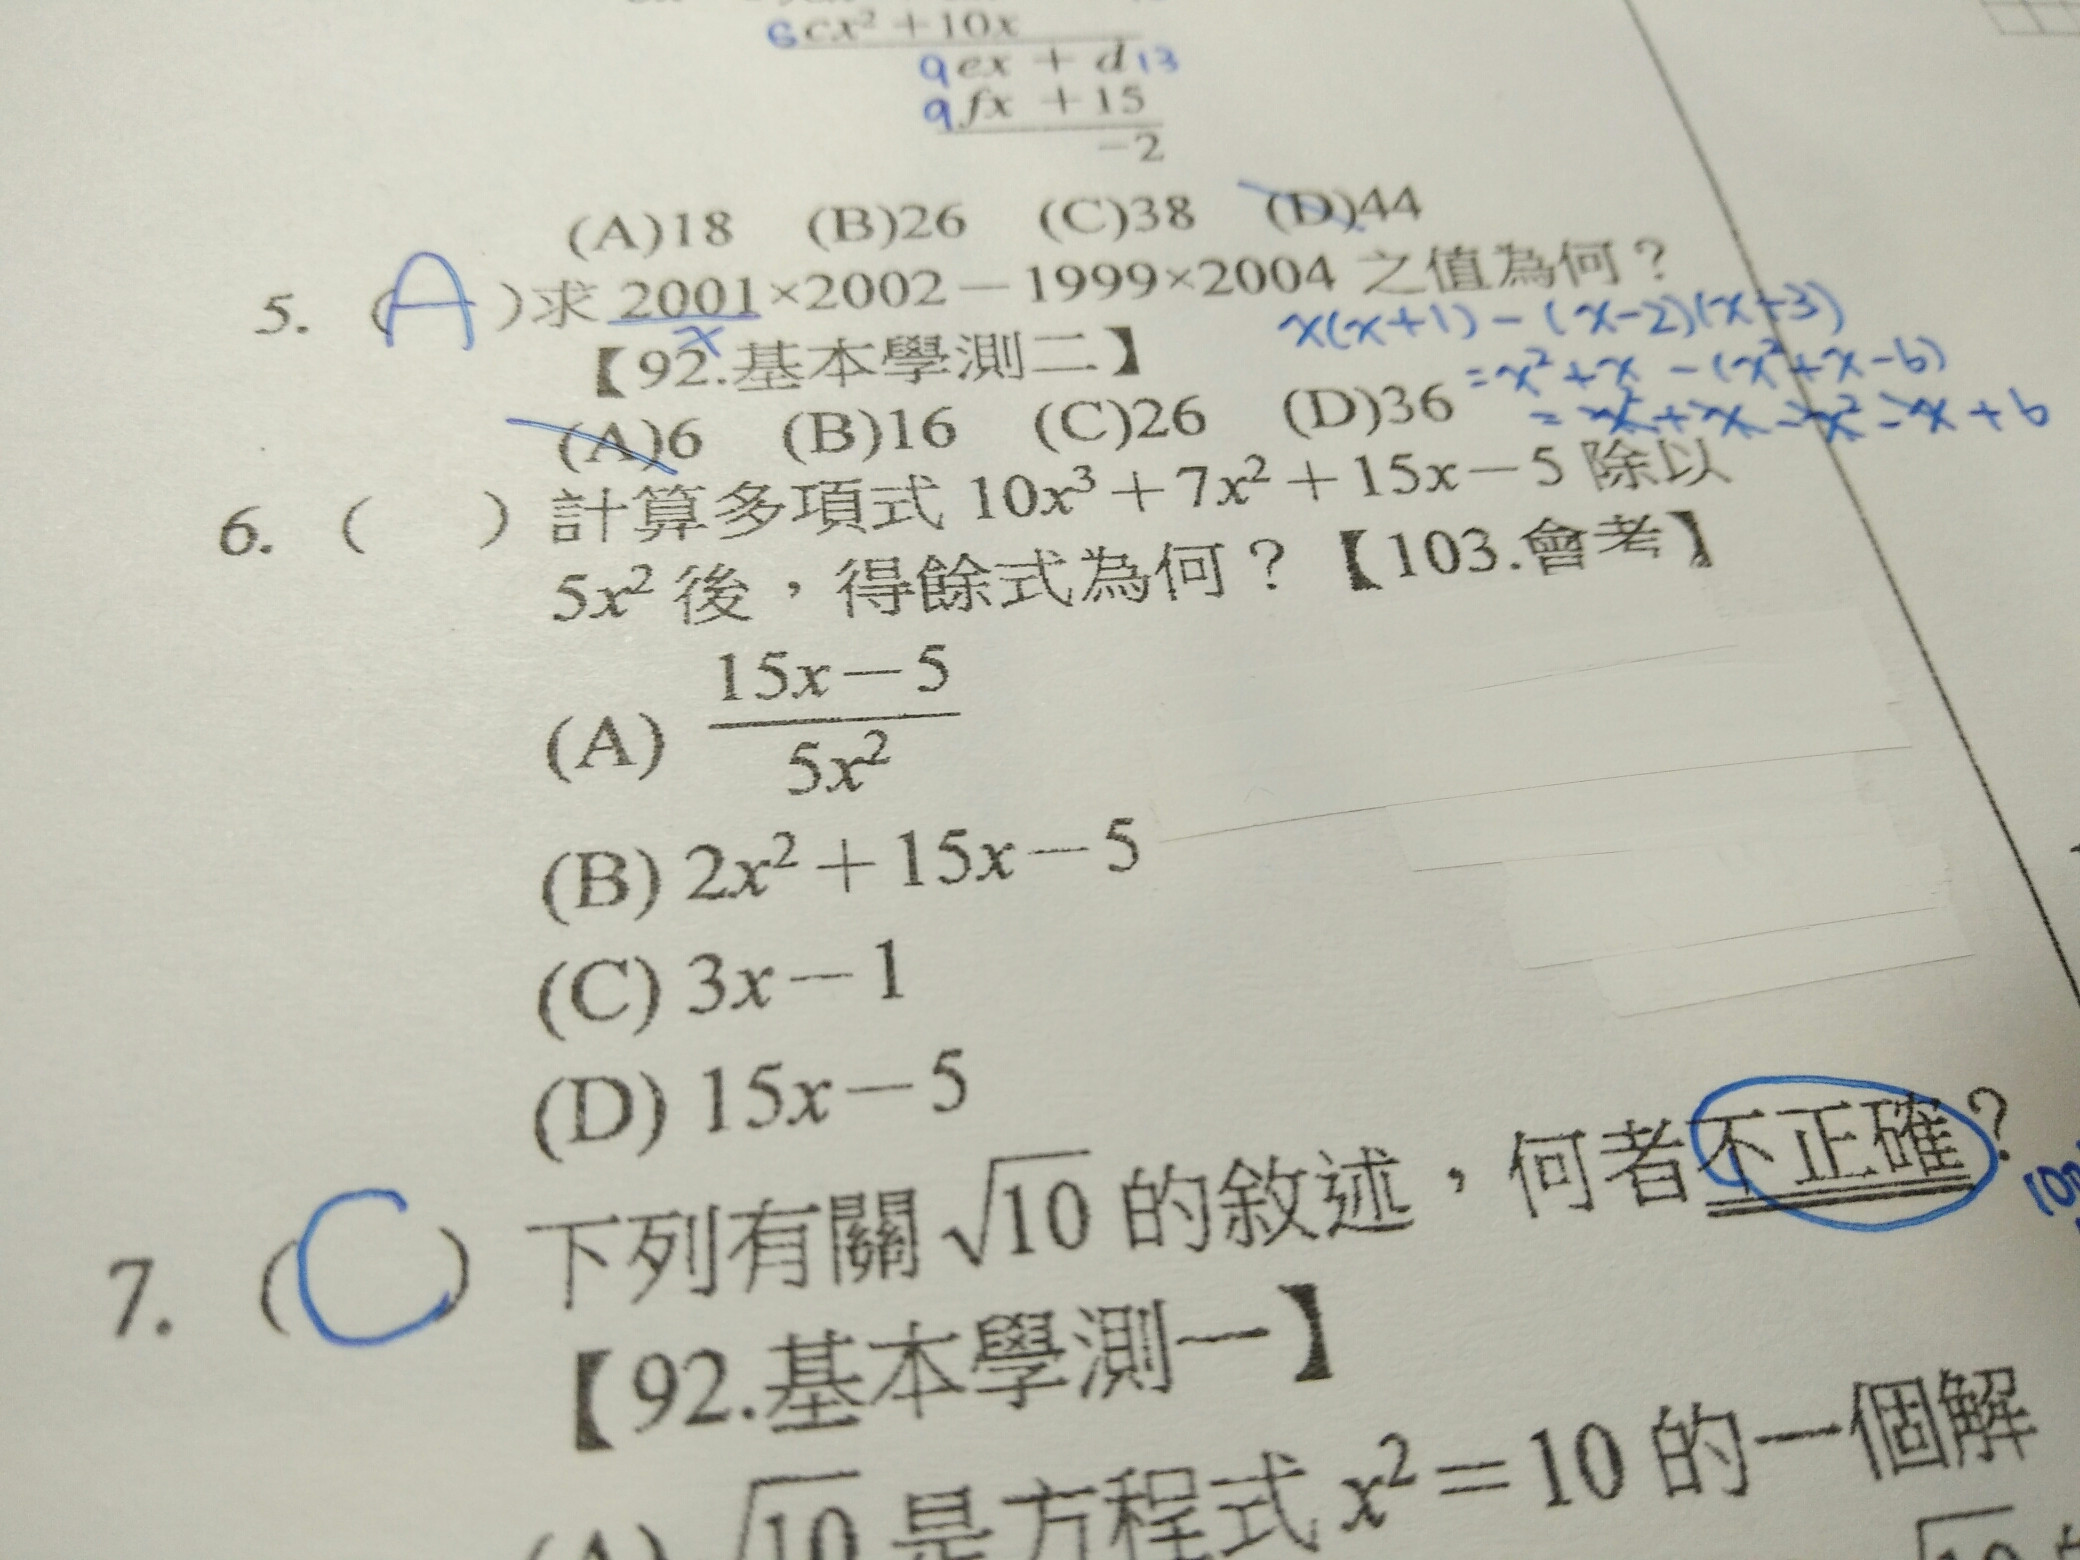 6 cx² + 10x
9 ex + d 13
9 fx + 15
-2
(A)18 (B)26 (C)38 (D)44
5. (A)求 2001×2002－1999×2004 之值為何？
x
x(x+1)-(x-2)(x+3)
【92.基本學測二】
=x²+x-(x²+x-6)
(A)6 (B)16 (C)26 (D)36
=x²+x-x²-x+6
6. ( ) 計算多項式 10x³＋7x²＋15x－5 除以
5x² 後，得餘式為何？【103.會考】
(A) 15x－5 / 5x²
(B) 2x²＋15x－5
(C) 3x－1
(D) 15x－5
7. (C) 下列有關 √10 的敘述，何者不正確？
【92.基本學測一】
(A) √10 是方程式 x²＝10 的一個解